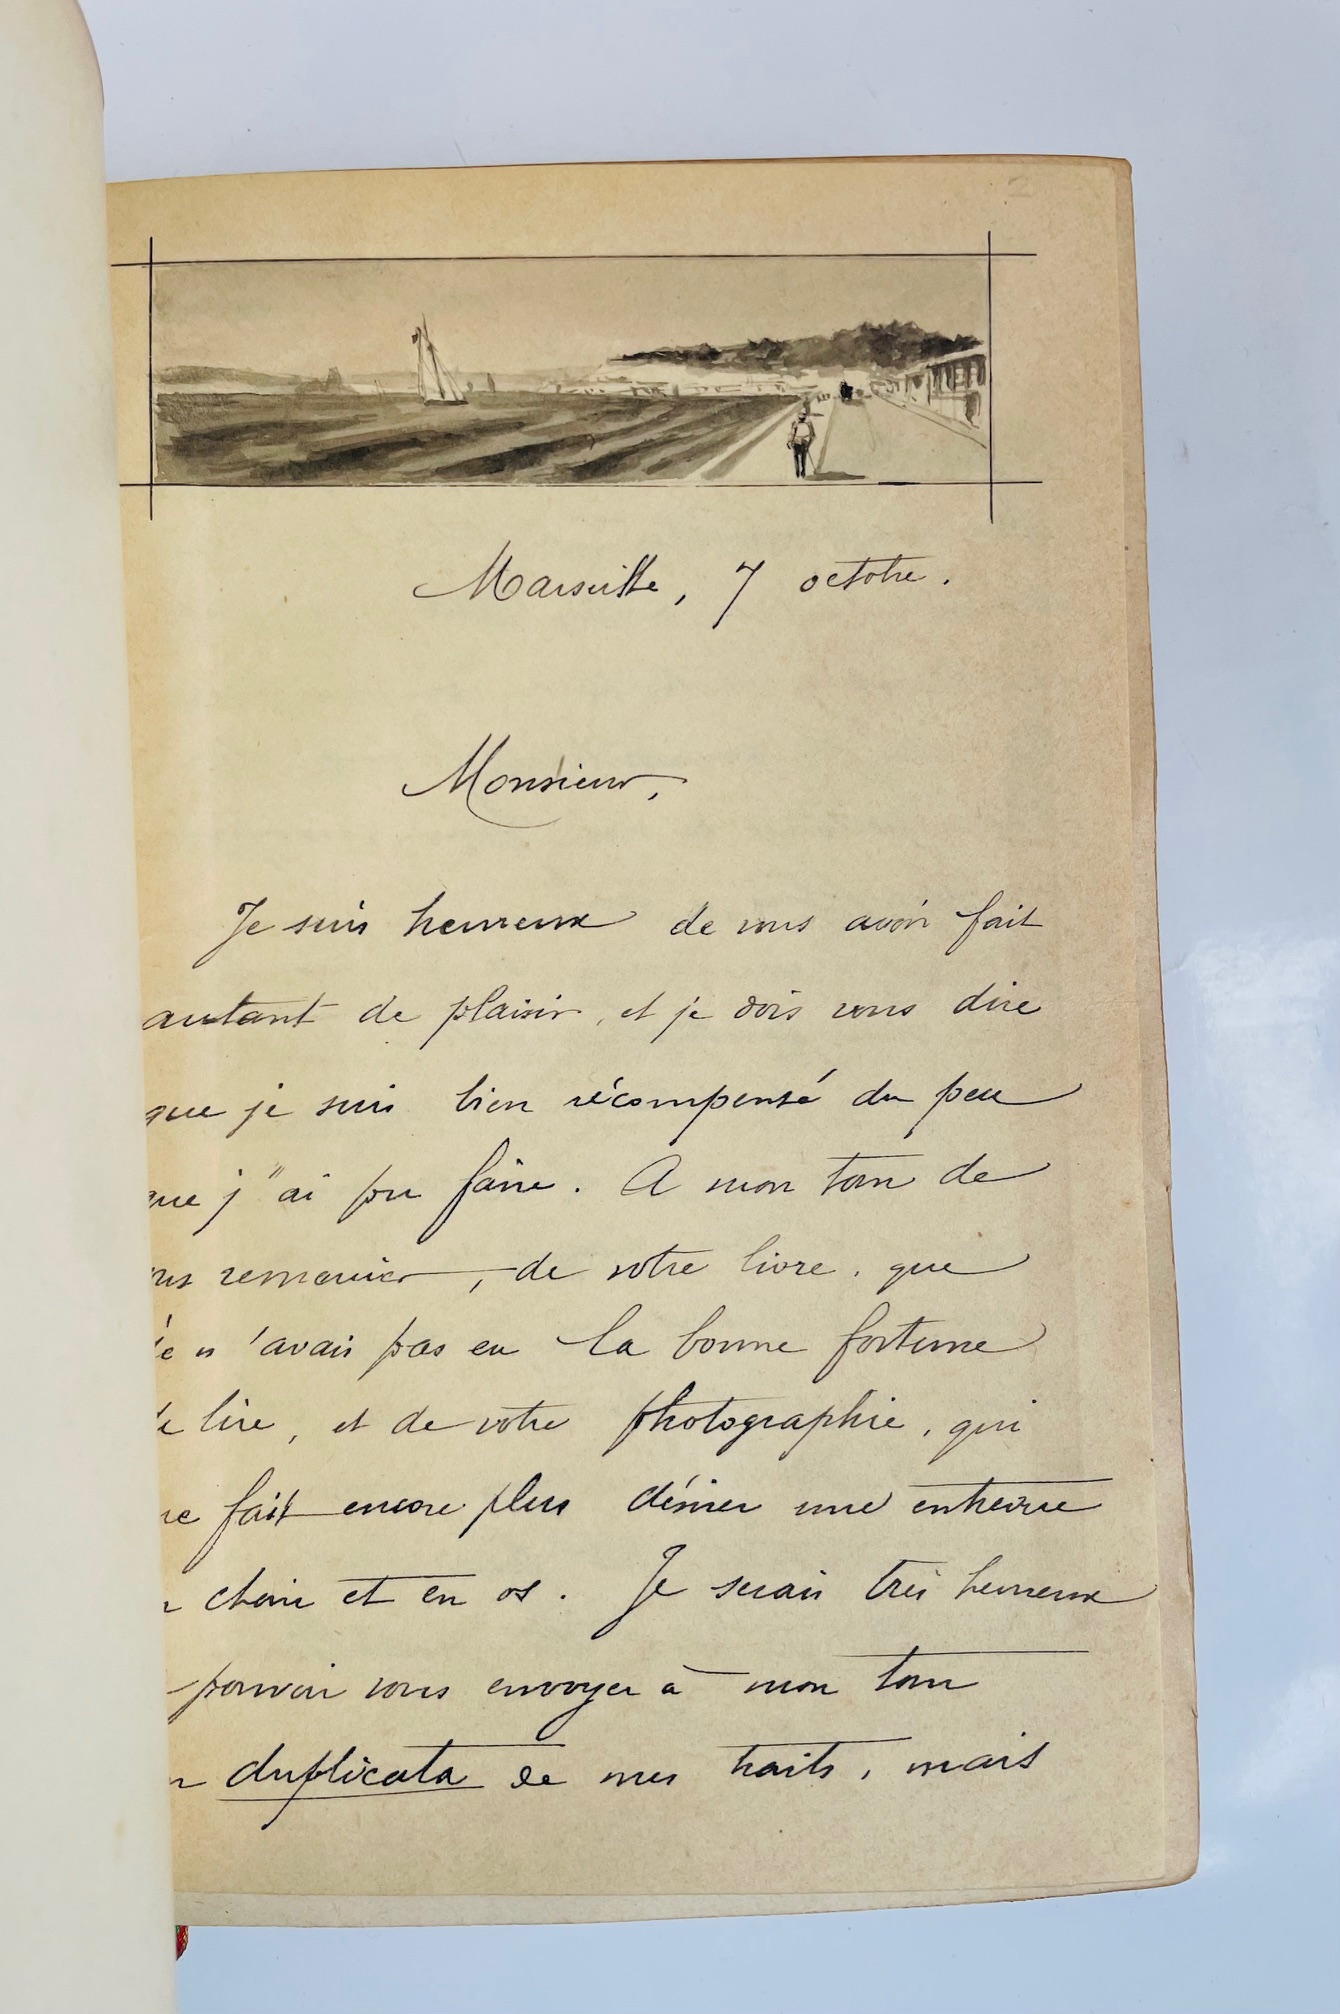 2
Marseille, 7 octobre.
Monsieur,
Je suis heureux de vous avoir fait
autant de plaisir, et je dois vous dire
que je suis bien récompensé du peu
que j'ai pu faire. A mon tour de
remercier, de votre livre, que
je n'avais pas eu la bonne fortune
lire, et de votre photographie, qui
fait encore plus désirer une entrevue
chair et en os. Je serais très heureux
pouvoir vous envoyer à mon tour
duplicata de mes traits, mais